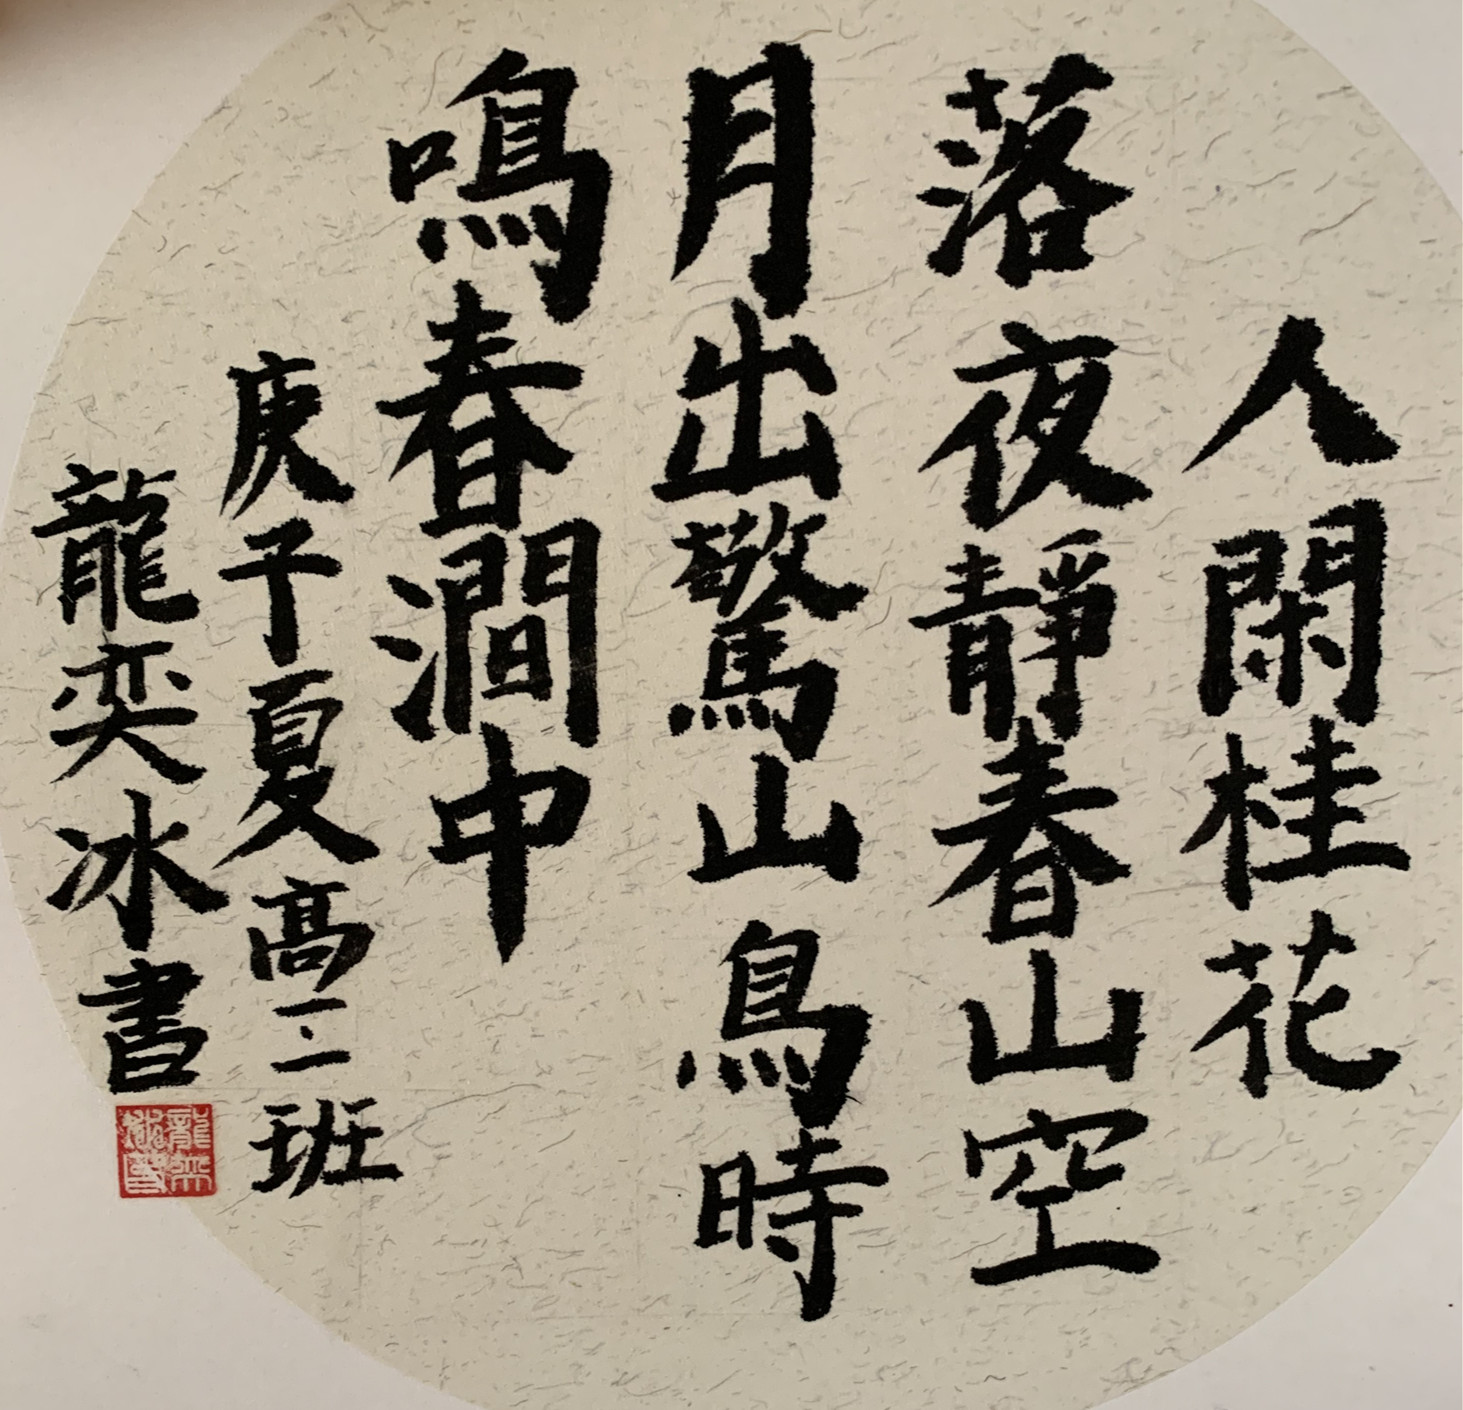 人閑桂花
落夜靜春山空
月出驚山鳥時
鳴春澗中
庚子夏高二二班
龍奕冰書